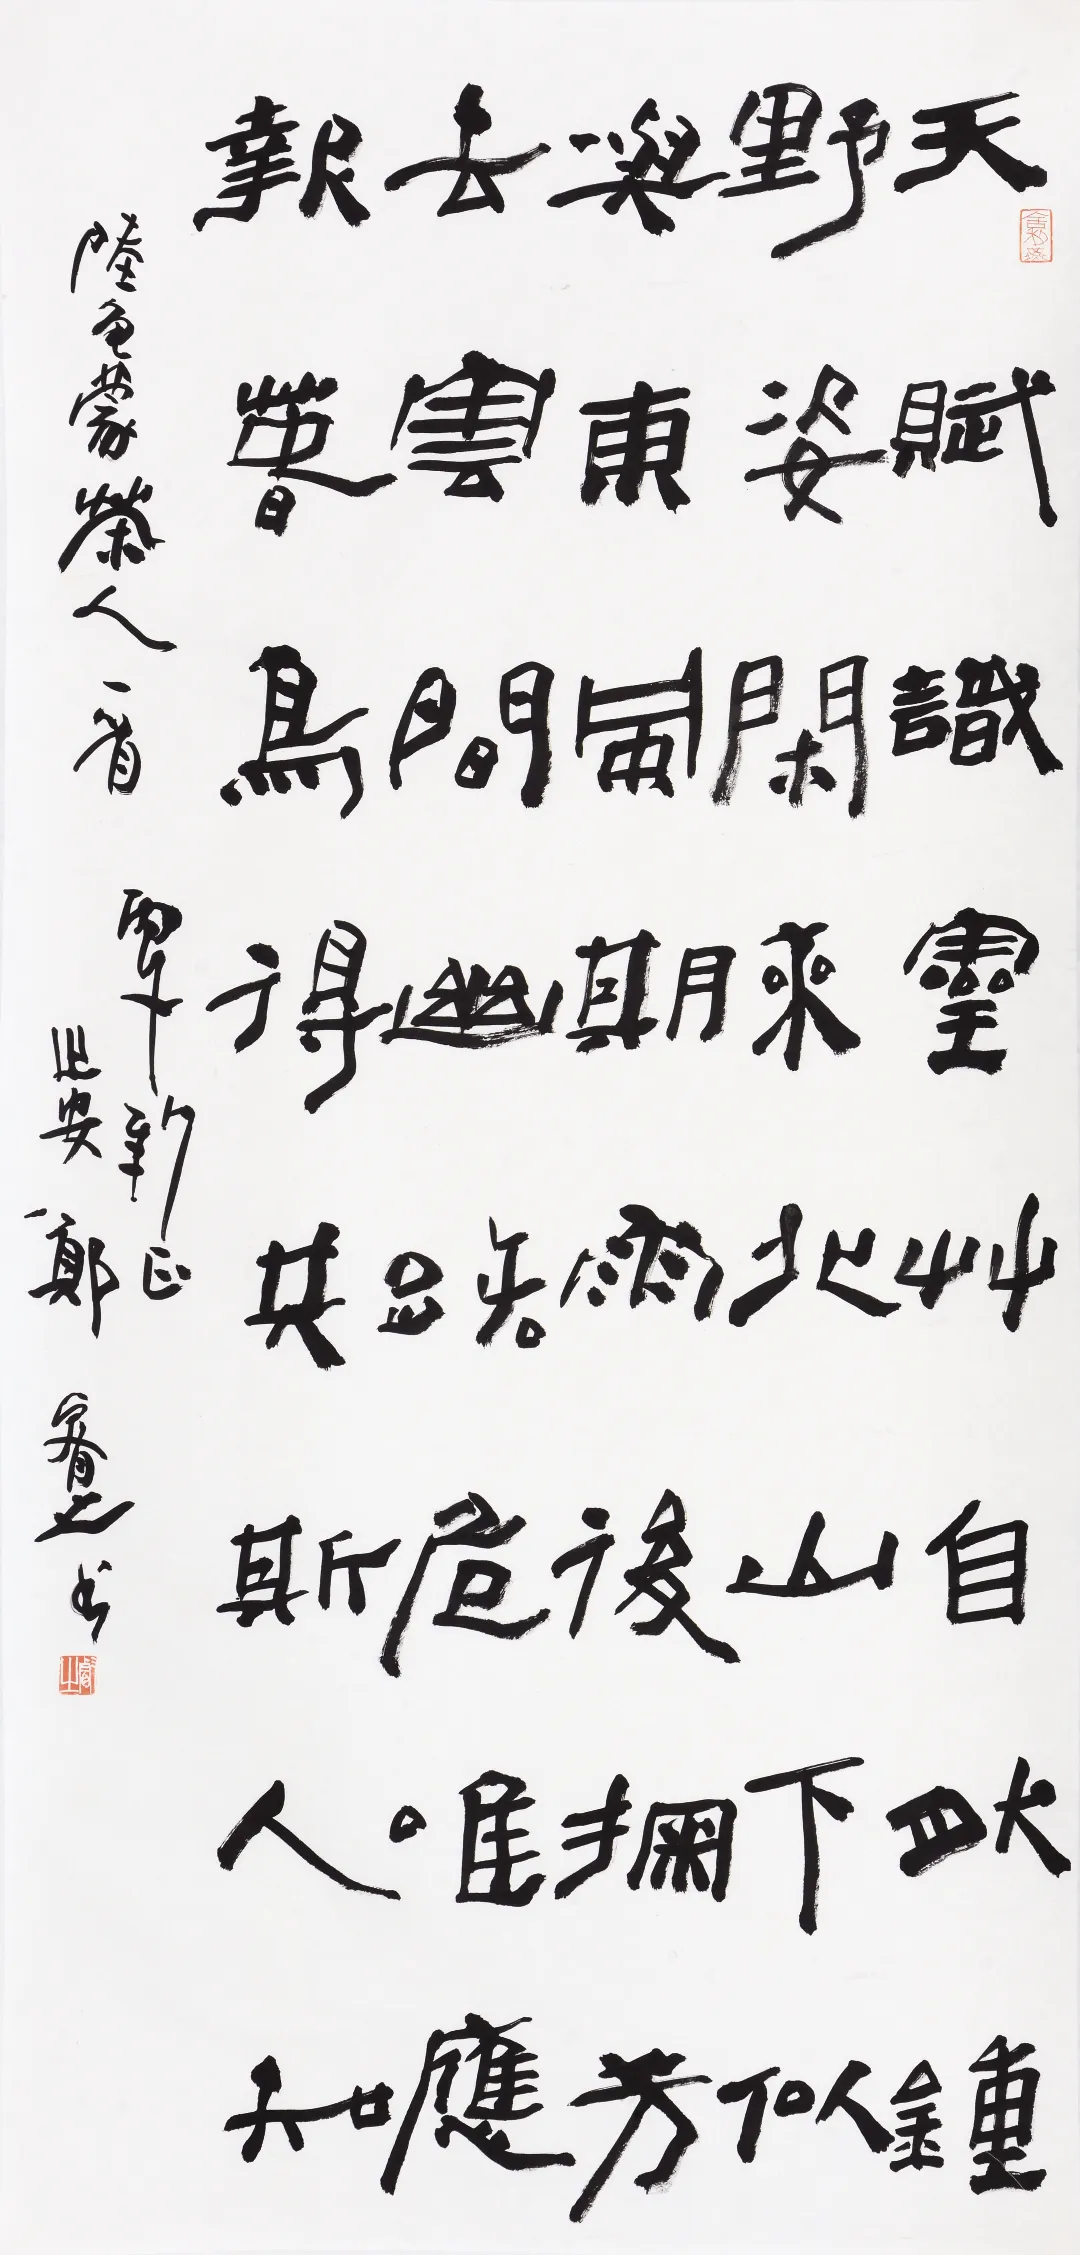 天賦識靈艸自肰鍾
野姿閑來北山下似
與東風期雨後探芳
去雲間幽路危唯應
報春鳥得共斯人知
陸龜蒙茶人一首 丙午新正
安 鄭睿之书
睿之